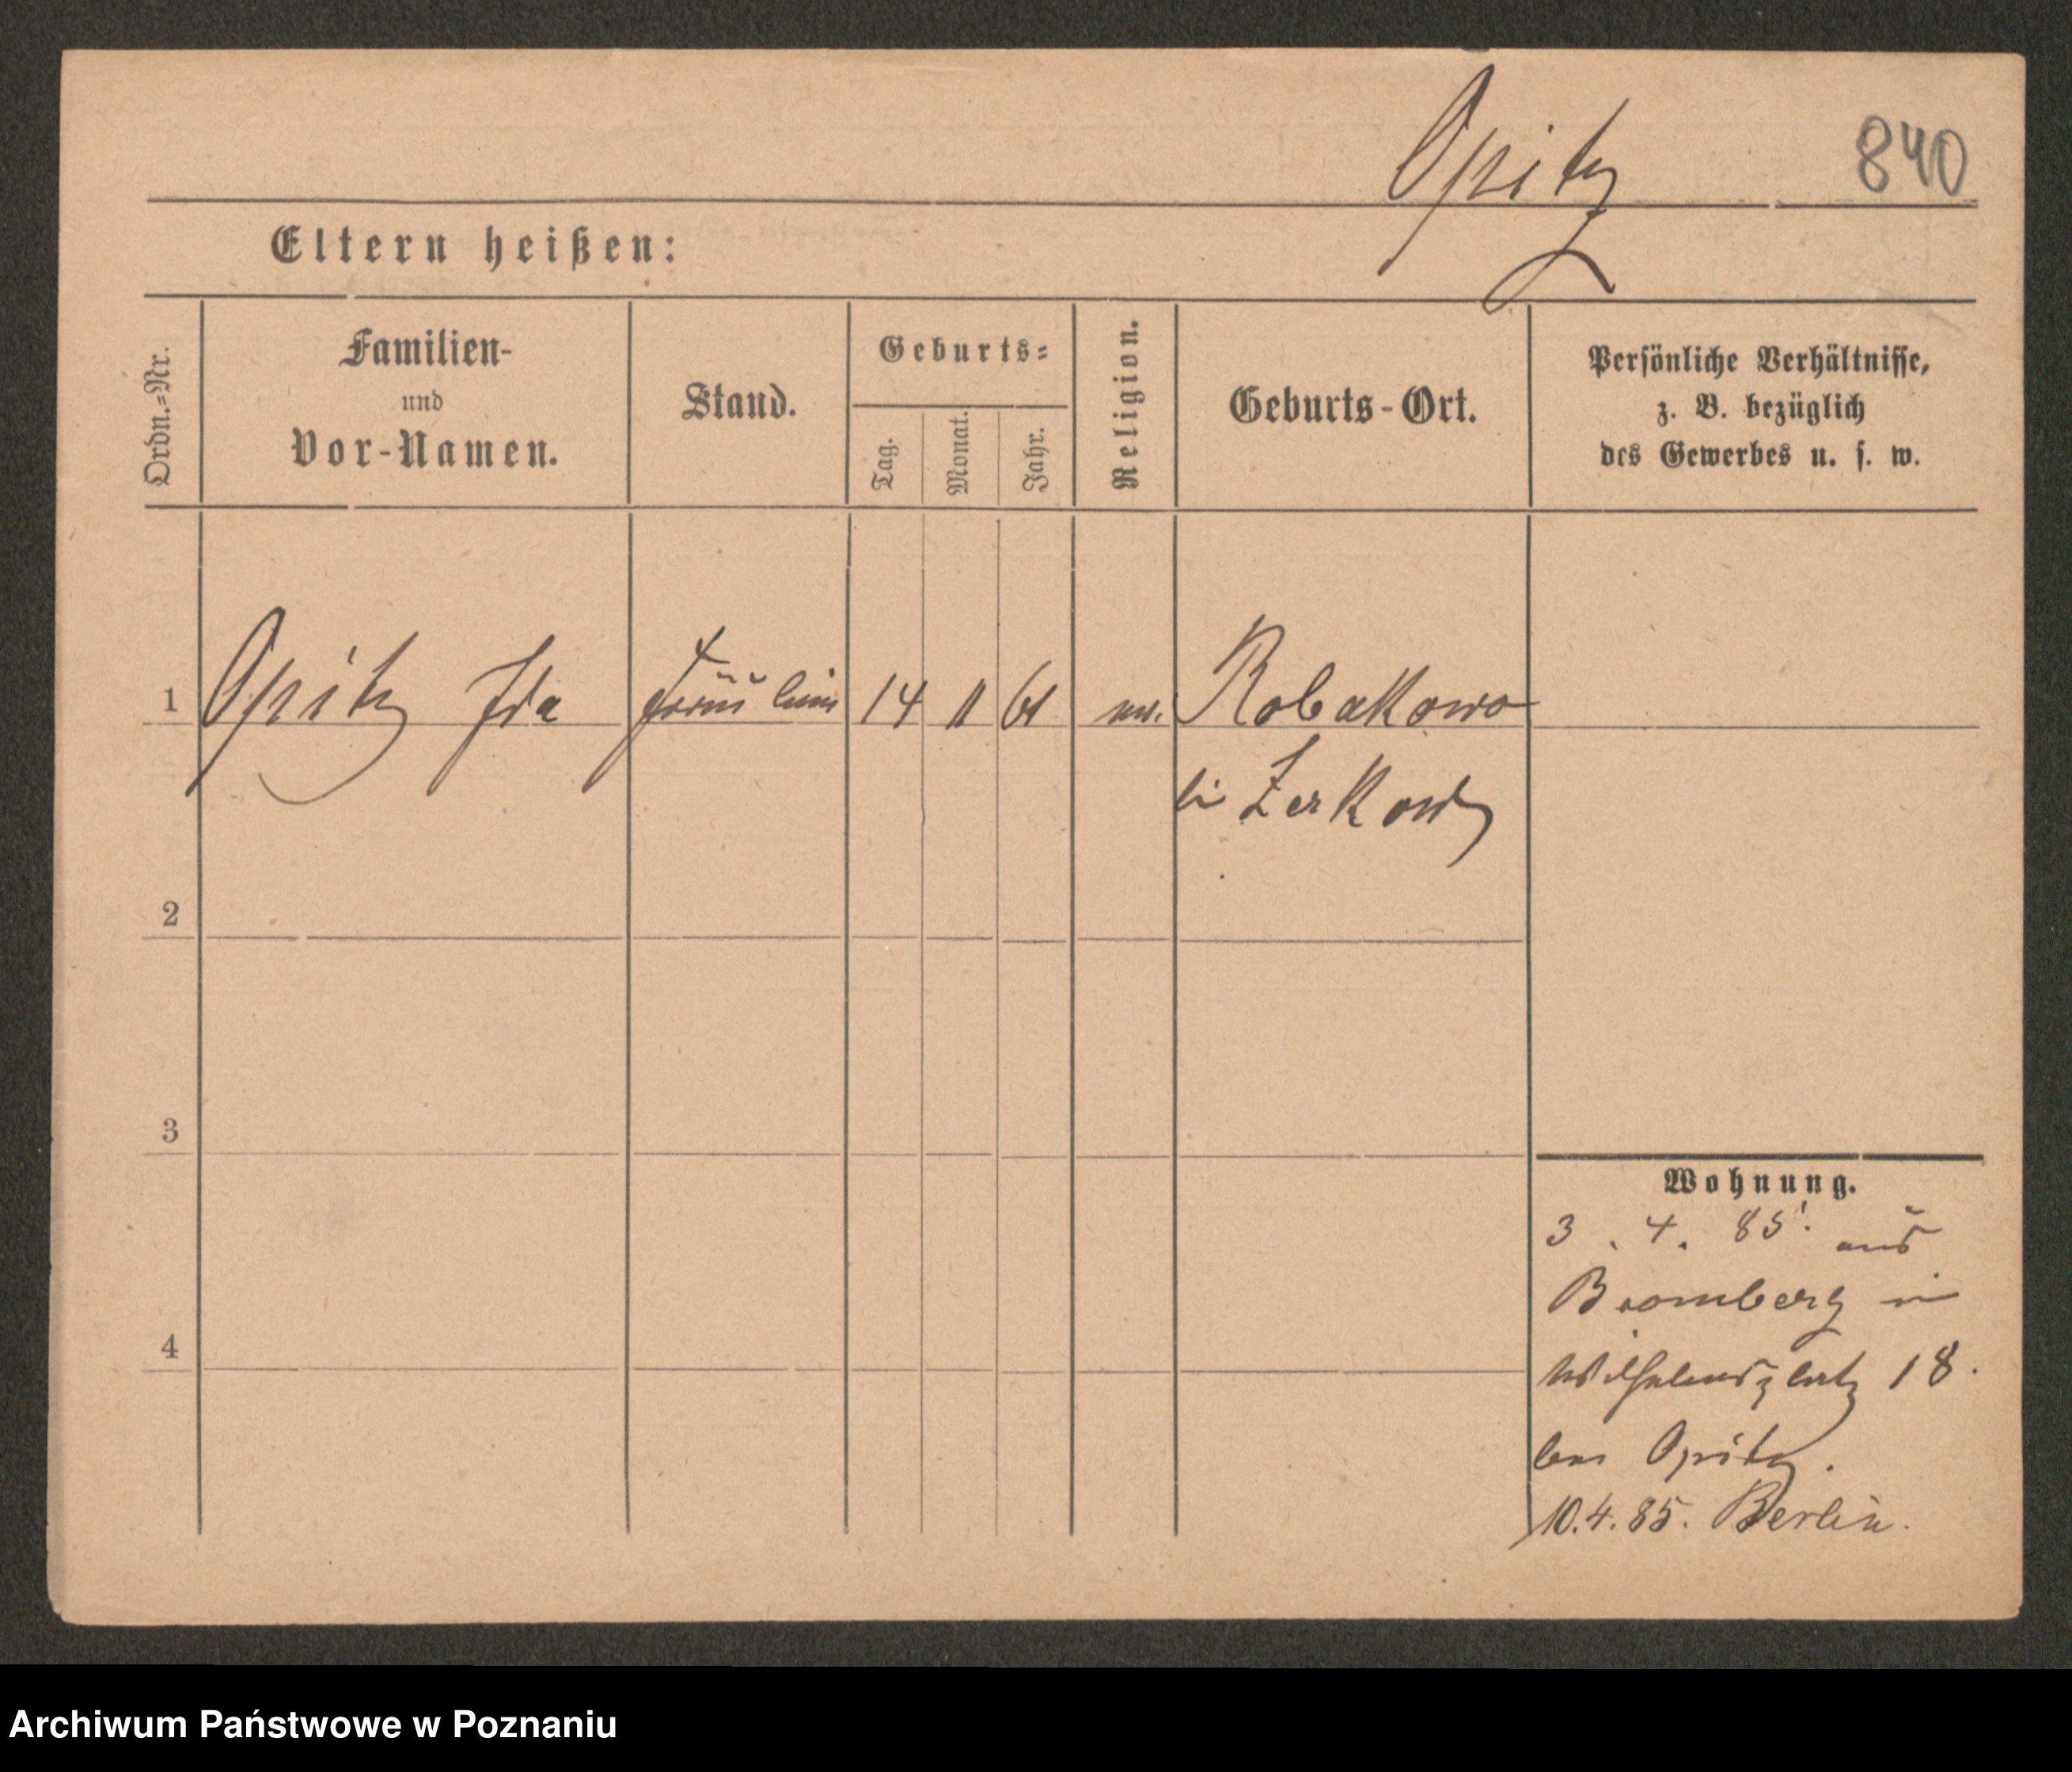 Opitz 840
Eltern heißen:
Ordn.=Nr.
Familien-
und
Vor-Namen.
Stand.
Geburts=
Tag.
Monat.
Jahr.
Religion.
Geburts-Ort.
Persönliche Verhältnisse,
z. B. bezüglich
des Gewerbes u. s. w.
1 Opitz Ida Fräulein 14 11 61 Robakowo
bei Zerkow
2
3
4
Wohnung.
3. 4. 85. aus
Bromberg in
Wilhelmsplatz 18.
bei Opitz.
10.4.85. Berlin.
Archiwum Państwowe w Poznaniu